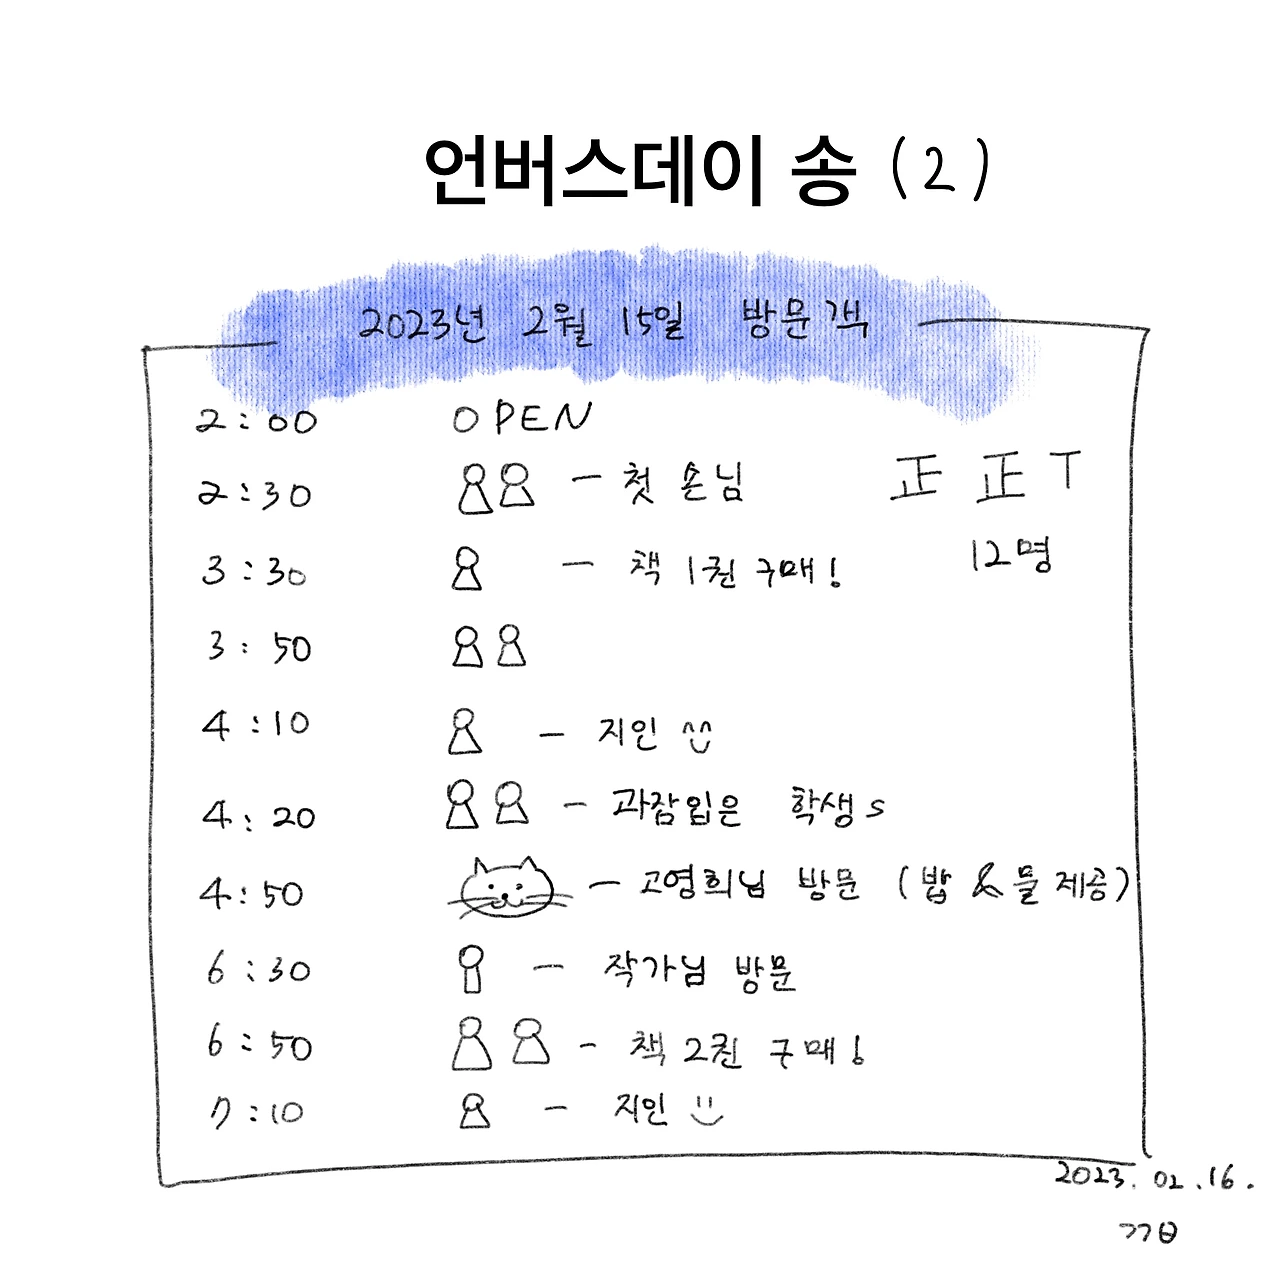 언버스데이 송 (2)
2023년 2월 15일 방문객
2:00 OPEN
2:30 — 첫 손님 正 正 T
12명
3:30 — 책 1권 구매!
3:50
4:10 — 지인 ^^
4:20 — 과잠입은 학생s
4:50 — 고영희님 방문 (밥 & 물 제공)
6:30 — 작가님 방문
6:50 - 책 2권 구매!
7:10 — 지인
2023. 02. 16.